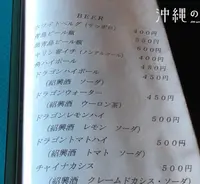 沖縄の
BEER
500円
青島ビール瓶 600円
500円
サントリー
ハイボール 400円
ドラゴンハイボール 450円
(紹興酒 ソーダ)
ドラゴンウォーター 450円
(紹興酒 ウーロン茶)
ドラゴンレモンハイ 500円
(紹興酒 レモン ソーダ)
ドラゴントマトハイ 500円
(紹興酒 トマト ソーダ)
チャイナカシス 500円
(紹興酒 クレームドカシス・ソーダ)